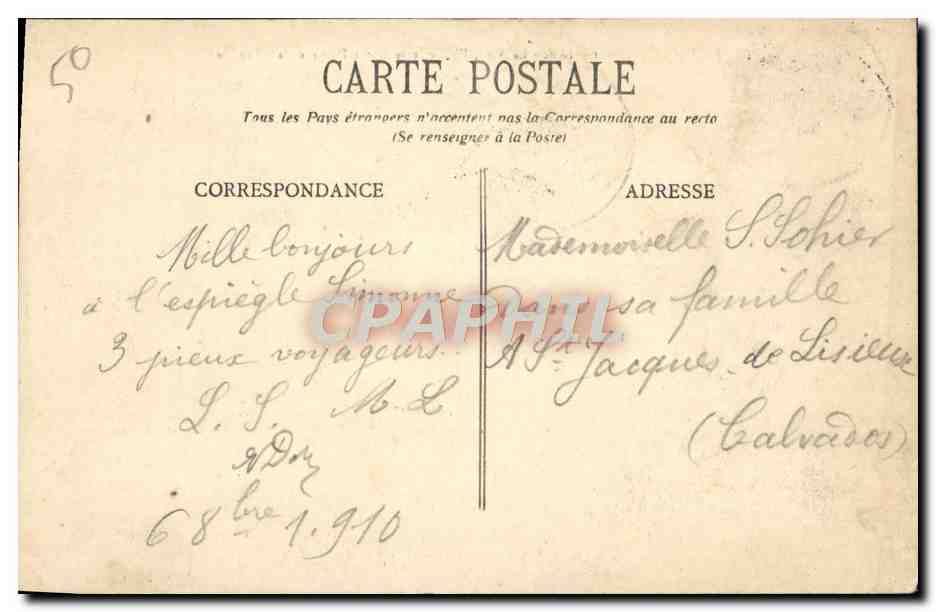 50
CARTE POSTALE
Tous les Pays étrangers n'acceptent pas la Correspondance au recto
(Se renseigner à la Poste)
CORRESPONDANCE
Mille bonjours
à l'espiègle Simonne
3 pieux voyageurs.
L. S. M. L
6 8bre 1.910
ADRESSE
Mademoiselle S. Sohier
Dans sa famille
A St. Jacques de Lisieux
(Calvados)
CPAPHIL